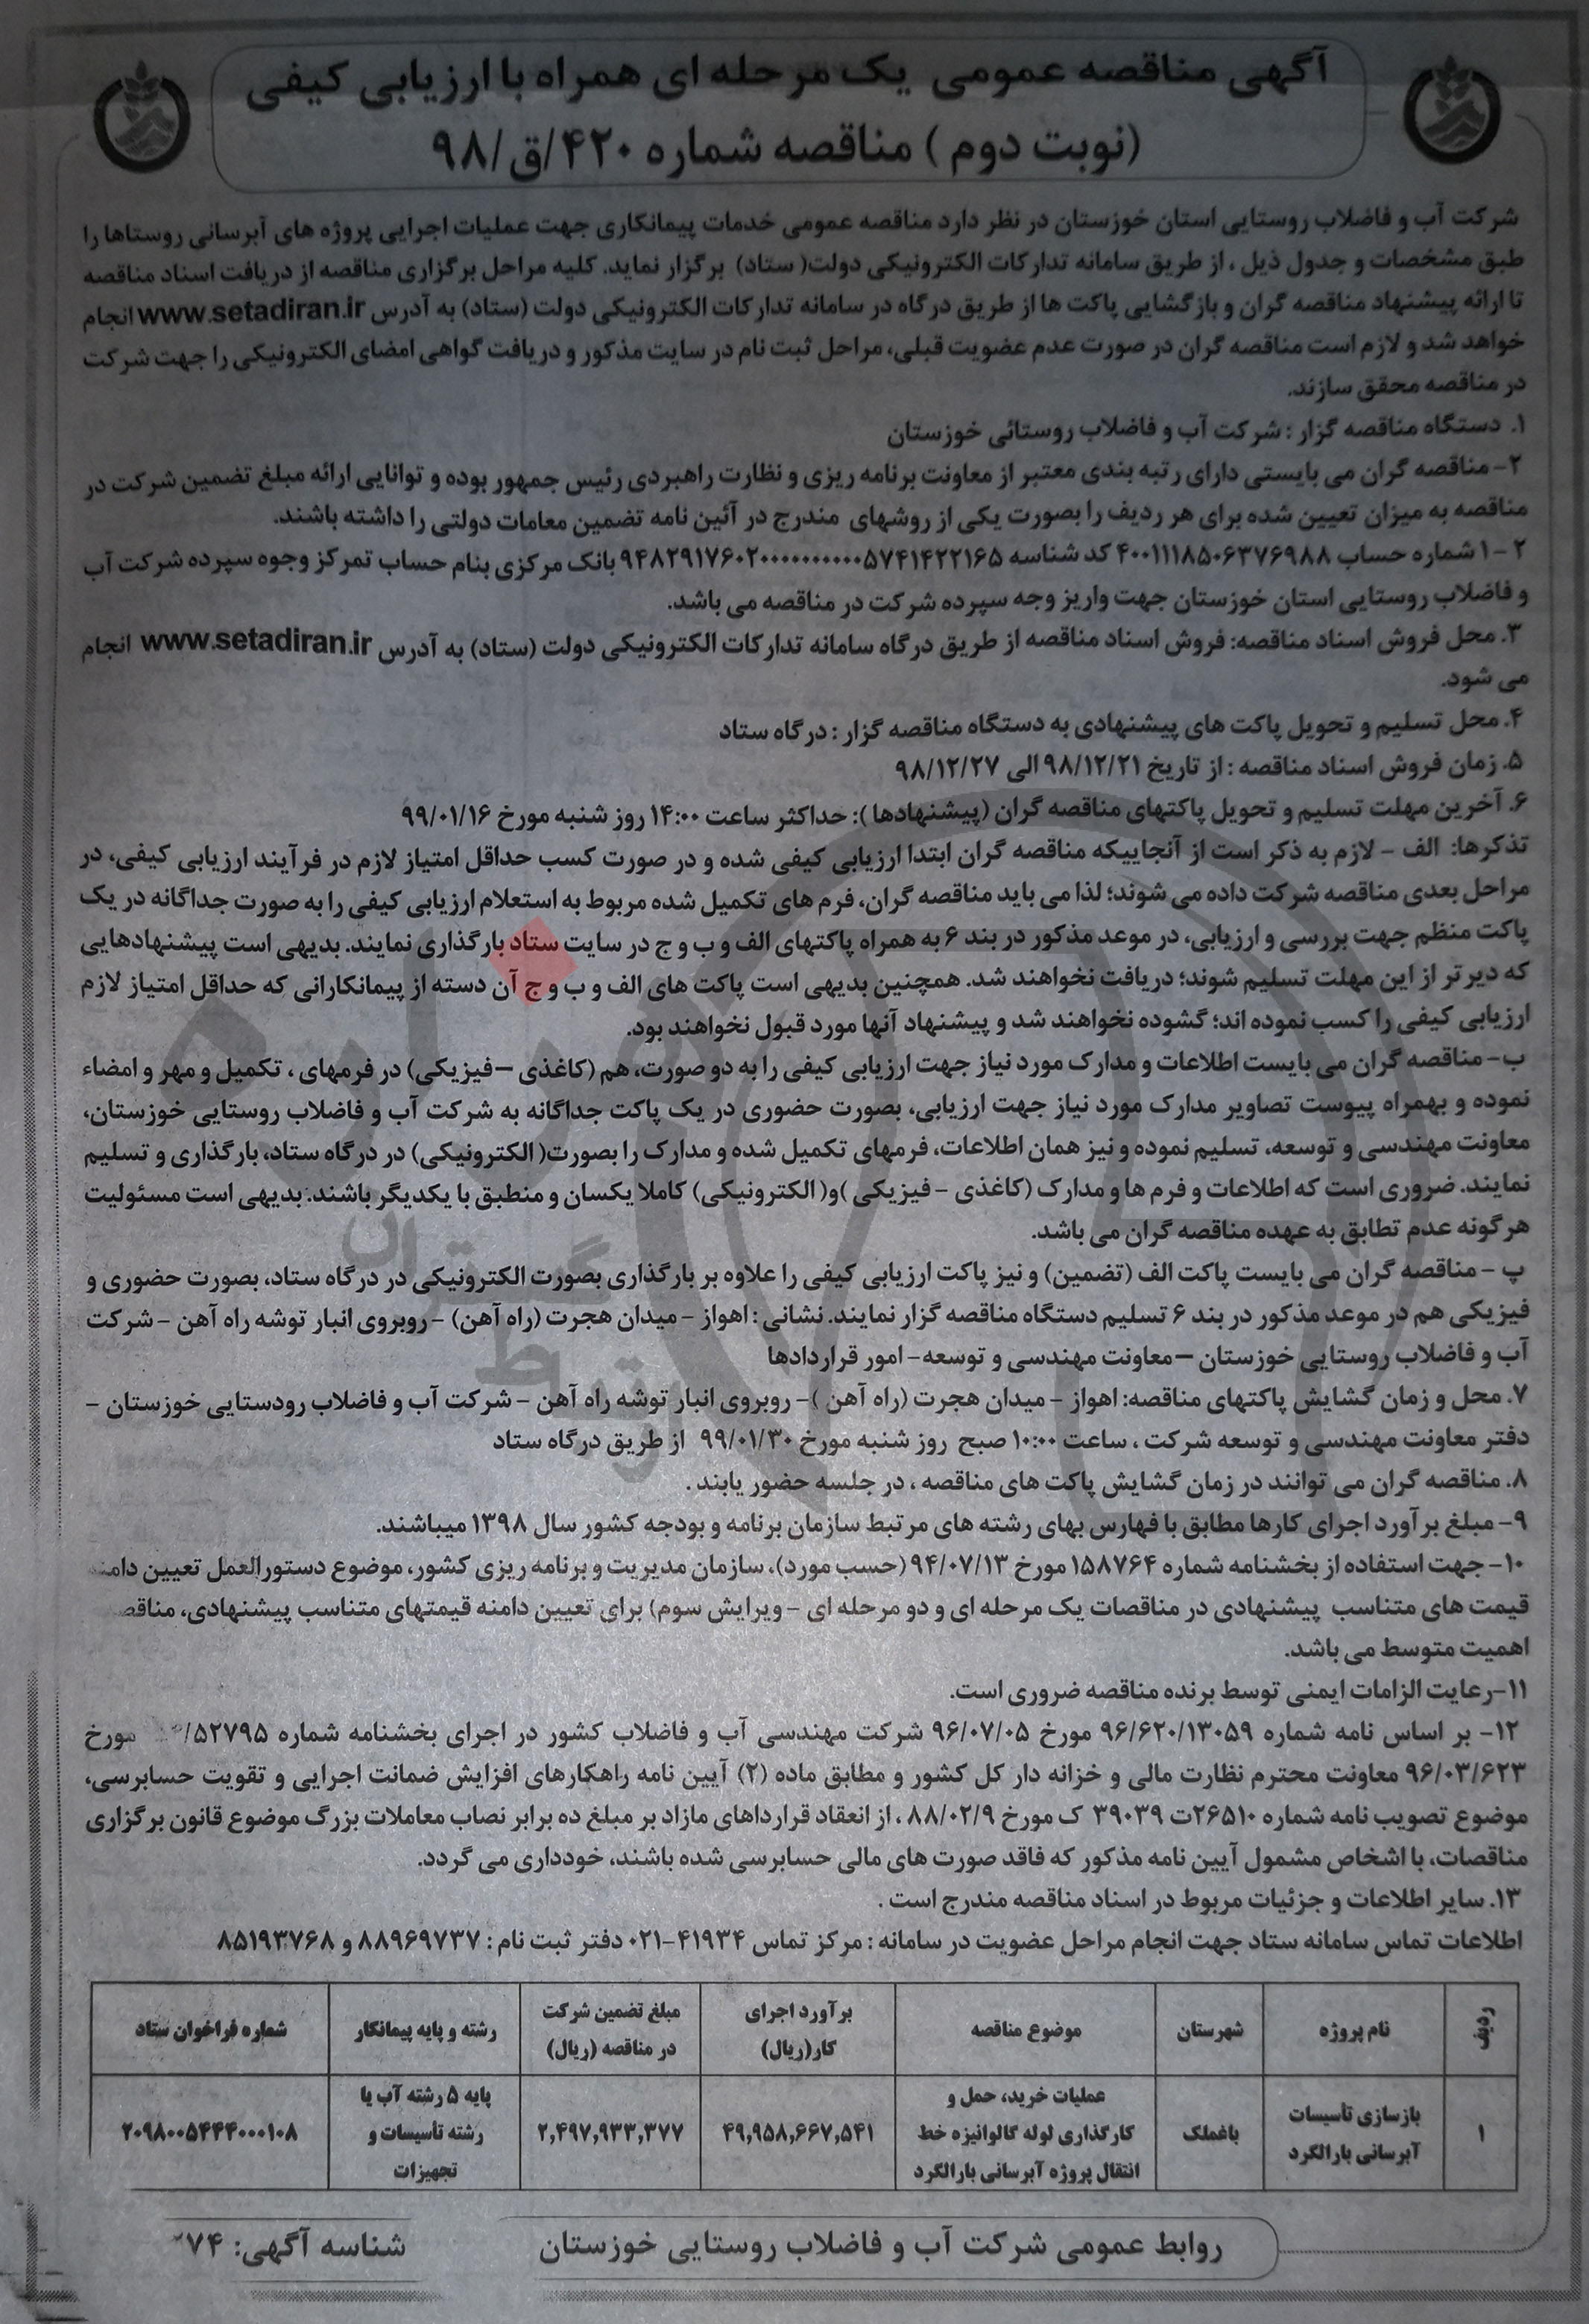 آگهی مناقصه عمومی یک مرحله ای همراه با ارزیابی کیفی
(نوبت دوم ) مناقصه شماره ۴۲۰/ق/۹۸
شرکت آب و فاضلاب روستایی استان خوزستان در نظر دارد مناقصه عمومی خدمات پیمانکاری جهت عملیات اجرایی پروژه های آبرسانی روستاها را
طبق مشخصات و جدول ذیل ، از طریق سامانه تدارکات الکترونیکی دولت( ستاد) برگزار نماید. کلیه مراحل برگزاری مناقصه از دریافت اسناد مناقصه
تا ارائه پیشنهاد مناقصه گران و بازگشایی پاکت ها از طریق درگاه در سامانه تدارکات الکترونیکی دولت (ستاد) به آدرس www.setadiran.ir انجام
خواهد شد و لازم است مناقصه گران در صورت عدم عضویت قبلی، مراحل ثبت نام در سایت مذکور و دریافت گواهی امضای الکترونیکی را جهت شرکت
در مناقصه محقق سازند.
۱. دستگاه مناقصه گزار : شرکت آب و فاضلاب روستائی خوزستان
۲- مناقصه گران می بایستی دارای رتبه بندی معتبر از معاونت برنامه ریزی و نظارت راهبردی رئیس جمهور بوده و توانایی ارائه مبلغ تضمین شرکت در
مناقصه به میزان تعیین شده برای هر ردیف را بصورت یکی از روشهای مندرج در آئین نامه تضمین معامات دولتی را داشته باشند.
۲-۱ شماره حساب ۴۰۰۱۱۱۸۵۰۶۳۷۶۹۸۸ کد شناسه ۹۴۸۲۹۱۷۶۰۲۰۰۰۰۰۰۰۰۰۰۰۵۷۴۱۴۲۲۱۶۵ بانک مرکزی بنام حساب تمرکز وجوه سپرده شرکت آب
و فاضلاب روستایی استان خوزستان جهت واریز وجه سپرده شرکت در مناقصه می باشد.
۳. محل فروش اسناد مناقصه: فروش اسناد مناقصه از طریق درگاه سامانه تدارکات الکترونیکی دولت (ستاد) به آدرس www.setadiran.ir انجام
می شود.
۴. محل تسلیم و تحویل پاکت های پیشنهادی به دستگاه مناقصه گزار : درگاه ستاد
۵. زمان فروش اسناد مناقصه : از تاریخ ۹۸/۱۲/۲۱ الی ۹۸/۱۲/۲۷
۶. آخرین مهلت تسلیم و تحویل پاکتهای مناقصه گران (پیشنهادها ): حداکثر ساعت ۱۴:۰۰ روز شنبه مورخ ۹۹/۰۱/۱۶
تذکرها: الف - لازم به ذکر است از آنجاییکه مناقصه گران ابتدا ارزیابی کیفی شده و در صورت کسب حداقل امتیاز لازم در فرآیند ارزیابی کیفی، در
مراحل بعدی مناقصه شرکت داده می شوند؛ لذا می باید مناقصه گران، فرم های تکمیل شده مربوط به استعلام ارزیابی کیفی را به صورت جداگانه در یک
پاکت منظم جهت بررسی و ارزیابی، در موعد مذکور در بند ۶ به همراه پاکتهای الف و ب و ج در سایت ستاد بارگذاری نمایند. بدیهی است پیشنهادهایی
که دیرتر از این مهلت تسلیم شوند؛ دریافت نخواهند شد. همچنین بدیهی است پاکت های الف و ب و ج آن دسته از پیمانکارانی که حداقل امتیاز لازم
ارزیابی کیفی را کسب نموده اند؛ گشوده نخواهند شد و پیشنهاد آنها مورد قبول نخواهند بود.
ب- مناقصه گران می بایست اطلاعات و مدارک مورد نیاز جهت ارزیابی کیفی را به دو صورت، هم (کاغذی -فیزیکی) در فرمهای ، تکمیل و مهر و امضاء
نموده و بهمراه پیوست تصاویر مدارک مورد نیاز جهت ارزیابی، بصورت حضوری در یک پاکت جداگانه به شرکت آب و فاضلاب روستایی خوزستان،
معاونت مهندسی و توسعه، تسلیم نموده و نیز همان اطلاعات، فرمهای تکمیل شده و مدارک را بصورت( الکترونیکی) در درگاه ستاد، بارگذاری و تسلیم
نمایند. ضروری است که اطلاعات و فرم ها و مدارک (کاغذی - فیزیکی )و( الکترونیکی) کاملا یکسان و منطبق با یکدیگر باشند. بدیهی است مسئولیت
هرگونه عدم تطابق به عهده مناقصه گران می باشد.
پ - مناقصه گران می بایست پاکت الف (تضمین) و نیز پاکت ارزیابی کیفی را علاوه بر بارگذاری بصورت الکترونیکی در درگاه ستاد، بصورت حضوری و
فیزیکی هم در موعد مذکور در بند ۶ تسلیم دستگاه مناقصه گزار نمایند. نشانی : اهواز - میدان هجرت (راه آهن) -روبروی انبار توشه راه آهن - شرکت
آب و فاضلاب روستایی خوزستان -معاونت مهندسی و توسعه- امور قراردادها
۷. محل و زمان گشایش پاکتهای مناقصه: اهواز - میدان هجرت (راه آهن )- روبروی انبار توشه راه آهن - شرکت آب و فاضلاب رودستایی خوزستان -
دفتر معاونت مهندسی و توسعه شرکت ، ساعت ۱۰:۰۰ صبح روز شنبه مورخ ۹۹/۰۱/۳۰ از طریق درگاه ستاد
۸. مناقصه گران می توانند در زمان گشایش پاکت های مناقصه ، در جلسه حضور یابند .
۹- مبلغ برآورد اجرای کارها مطابق با فهارس بهای رشته های مرتبط سازمان برنامه و بودجه کشور سال ۱۳۹۸ میباشند.
۱۰- جهت استفاده از بخشنامه شماره ۱۵۸۷۶۴ مورخ ۹۴/۰۷/۱۳ (حسب مورد)، سازمان مدیریت و برنامه ریزی کشور، موضوع دستورالعمل تعیین
قیمت های متناسب پیشنهادی در مناقصات یک مرحله ای و دو مرحله ای - ویرایش سوم) برای تعیین دامنه قیمتهای متناسب پیشنهادی،
اهمیت متوسط می باشد.
۱۱-رعایت الزامات ایمنی توسط برنده مناقصه ضروری است.
۱۲- بر اساس نامه شماره ۹۶/۶۲۰/۱۳۰۵۹ مورخ ۹۶/۰۷/۰۵ شرکت مهندسی آب و فاضلاب کشور در اجرای بخشنامه شماره ۵۲۷۹۵/ مورخ
۹۶/۰۳/۶۲۳ معاونت محترم نظارت مالی و خزانه دار کل کشور و مطابق ماده (۲) آیین نامه راهکارهای افزایش ضمانت اجرایی و تقویت حسابرسی،
موضوع تصویب نامه شماره ۲۶۵۱۰ت ۳۹۰۳۹ ک مورخ ۸۸/۰۲/۹ ، از انعقاد قرارداهای مازاد بر مبلغ ده برابر نصاب معاملات بزرگ موضوع قانون برگزاری
مناقصات، با اشخاص مشمول آیین نامه مذکور که فاقد صورت های مالی حسابرسی شده باشند، خودداری می گردد.
۱۳. سایر اطلاعات و جزئیات مربوط در اسناد مناقصه مندرج است .
اطلاعات تماس سامانه ستاد جهت انجام مراحل عضویت در سامانه : مرکز تماس ۴۱۹۳۴-۰۲۱ دفتر ثبت نام : ۸۸۹۶۹۷۳۷ و ۸۵۱۹۳۷۶۸
ردیف نام پروژه شهرستان موضوع مناقصه برآورد اجرای کار(ریال) مبلغ تضمین شرکت در مناقصه (ریال) رشته و پایه پیمانکار شماره فراخوان ستاد
۱ بازسازی تأسیسات آبرسانی بارالگرد باغملک عملیات خرید، حمل و کارگذاری لوله گالوانیزه خط انتقال پروژه آبرسانی بارالگرد ۴۹,۹۵۸,۶۶۷,۵۴۱ ۲,۴۹۷,۹۳۳,۳۷۷ پایه ۵ رشته آب یا رشته تأسیسات و تجهیزات ۲۰۹۸۰۰۵۴۴۴۰۰۰۱۰۸
روابط عمومی شرکت آب و فاضلاب روستایی خوزستان
شناسه آگهی: